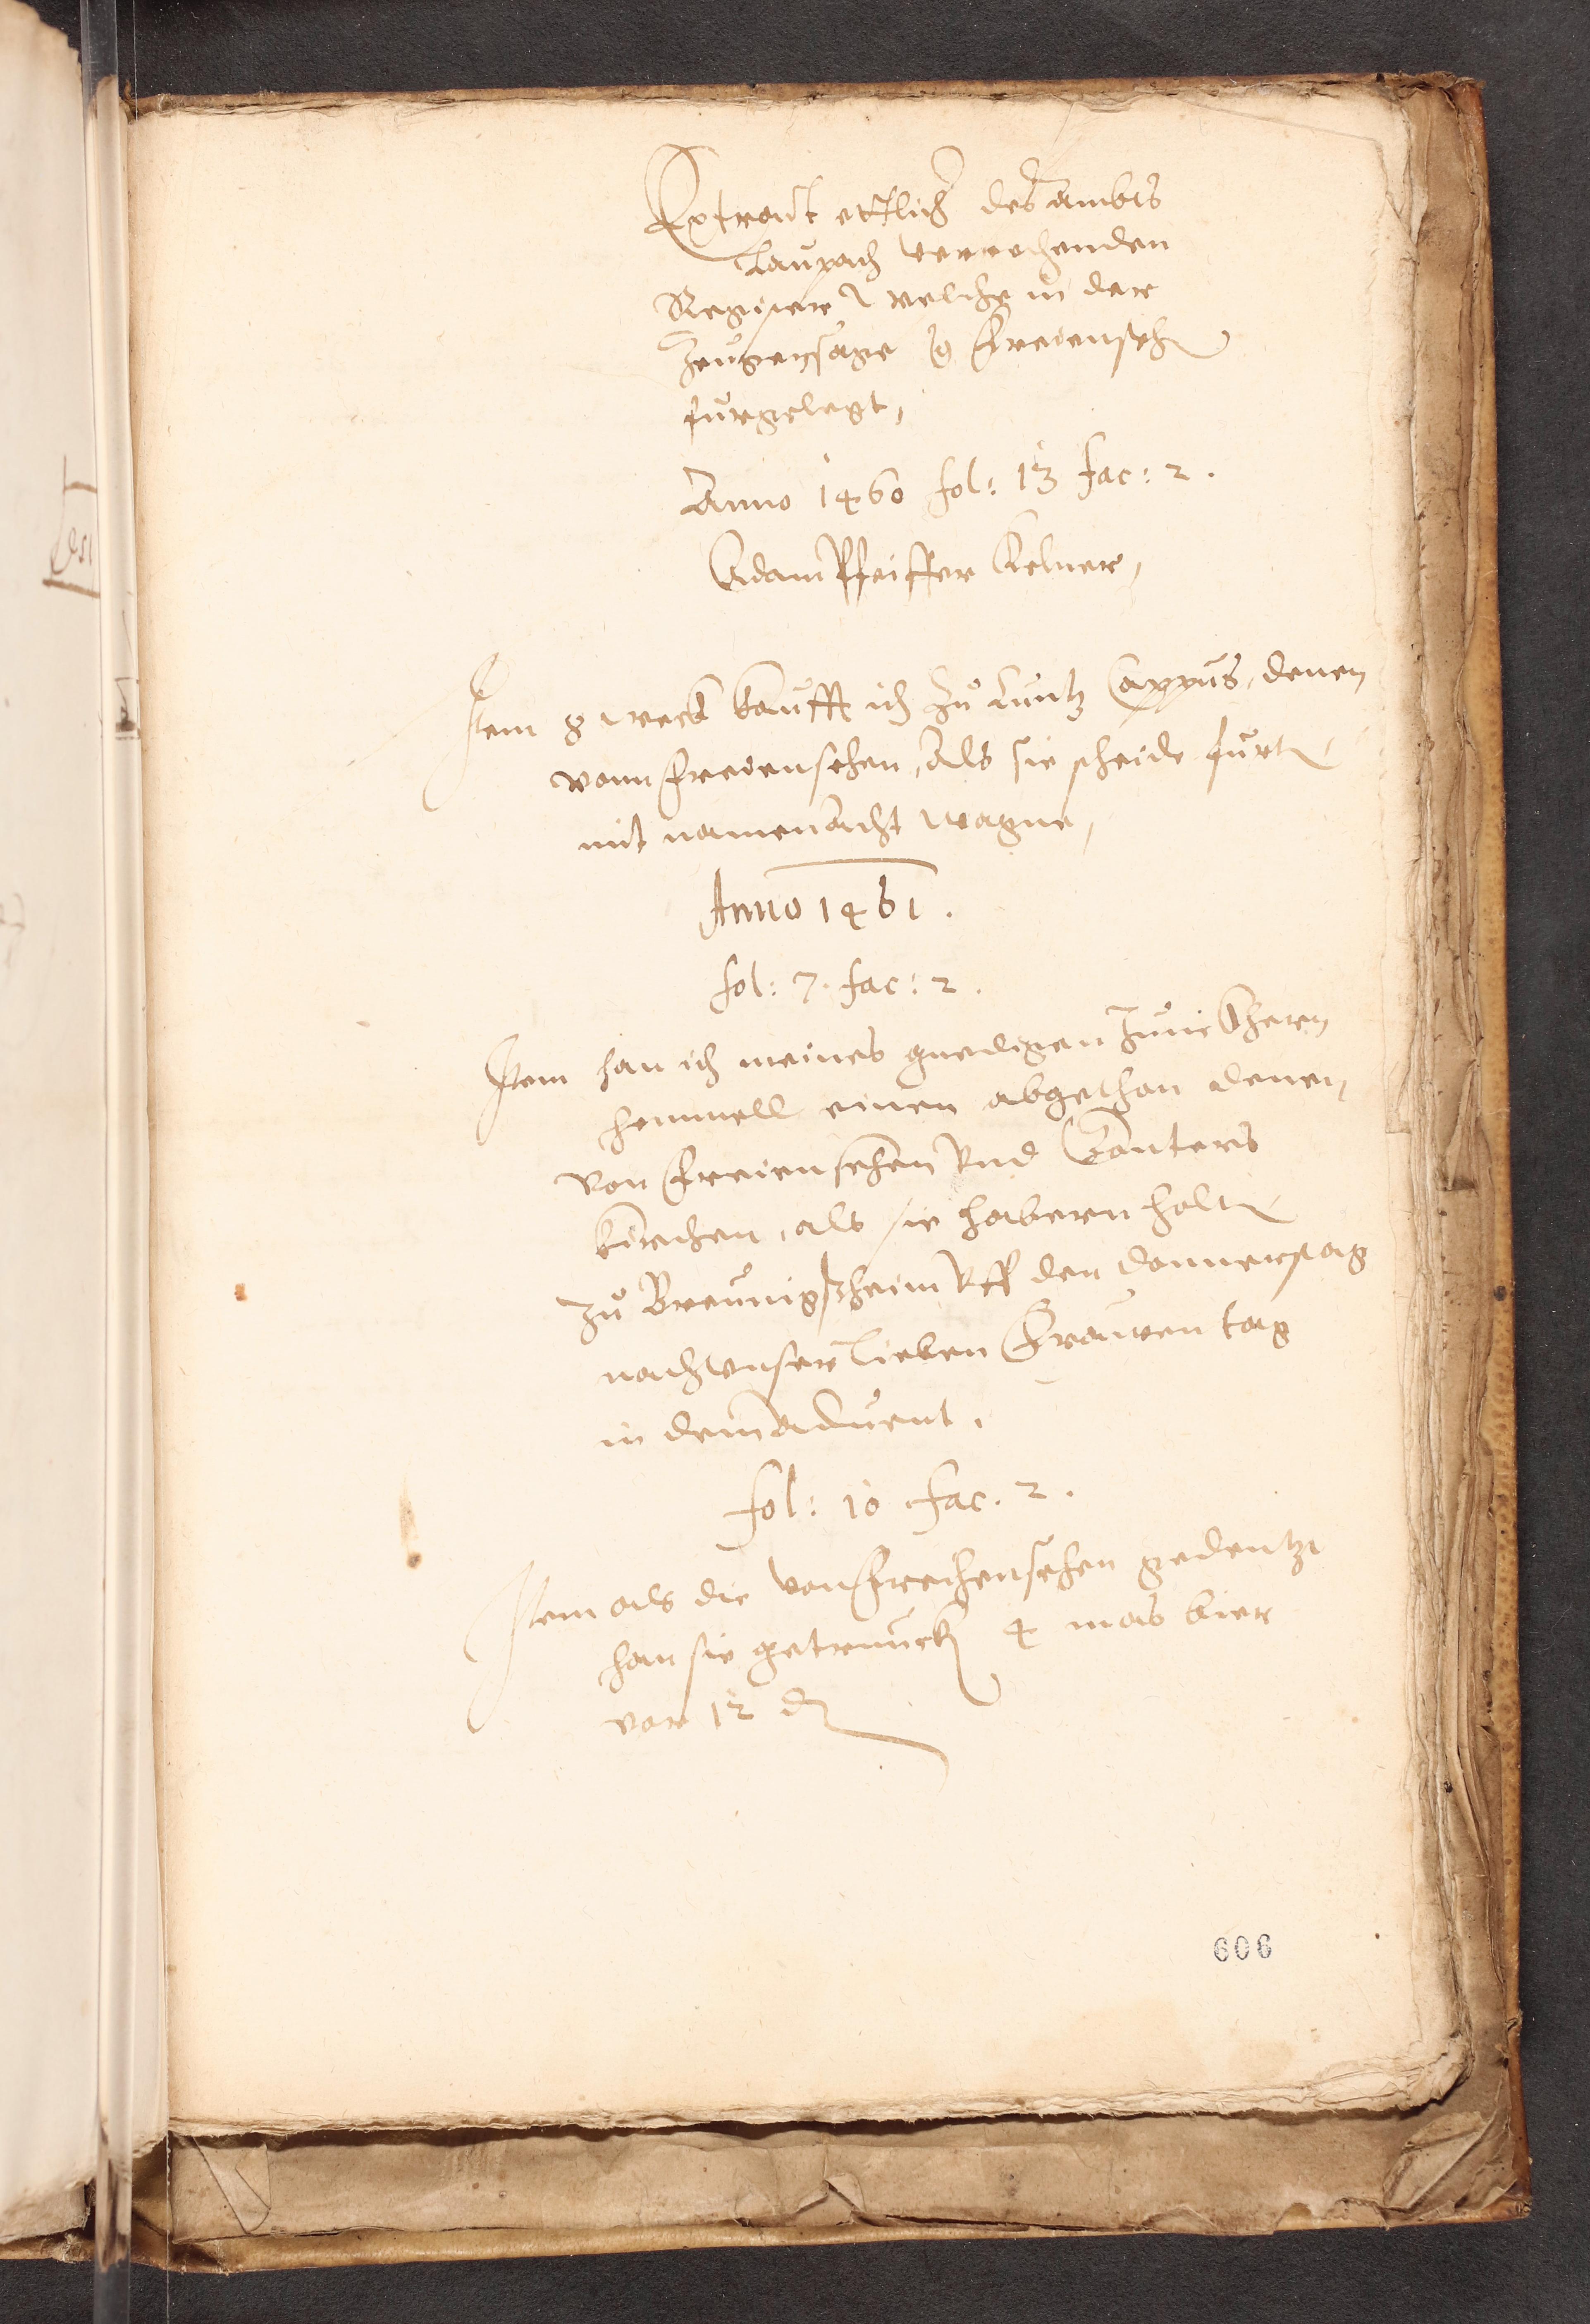 Extract etlich des Ambts
Laupach verrechenden
Register welche in der
Zeugensage Freiensehe
furgelegt,
Anno 1460 fol: 13 fac: 2.
Adam Pfeiffer Kelner,
Item 8 weck kaufft ich zu Cuntz Cappus, denen
vonn Freiensehen, Als sie scheide furt
mit namen Acht wagne,
Anno 1461.
fol: 7. fac: 2.
Item han ich meines gnedigen Junckhern
hemmell einen abgethan denen,
von Freiensehen Vnd Gonters
kirchen, als sie habern holt
zu Breungeßheim Vff den donnerstag
nach Vnser Lieben Frauwen tag
in dem Aduent.
fol: 10 fac. 2.
Item als die von Freihensehen
han sie getrunck 4 mas bier
vor 12 d
606